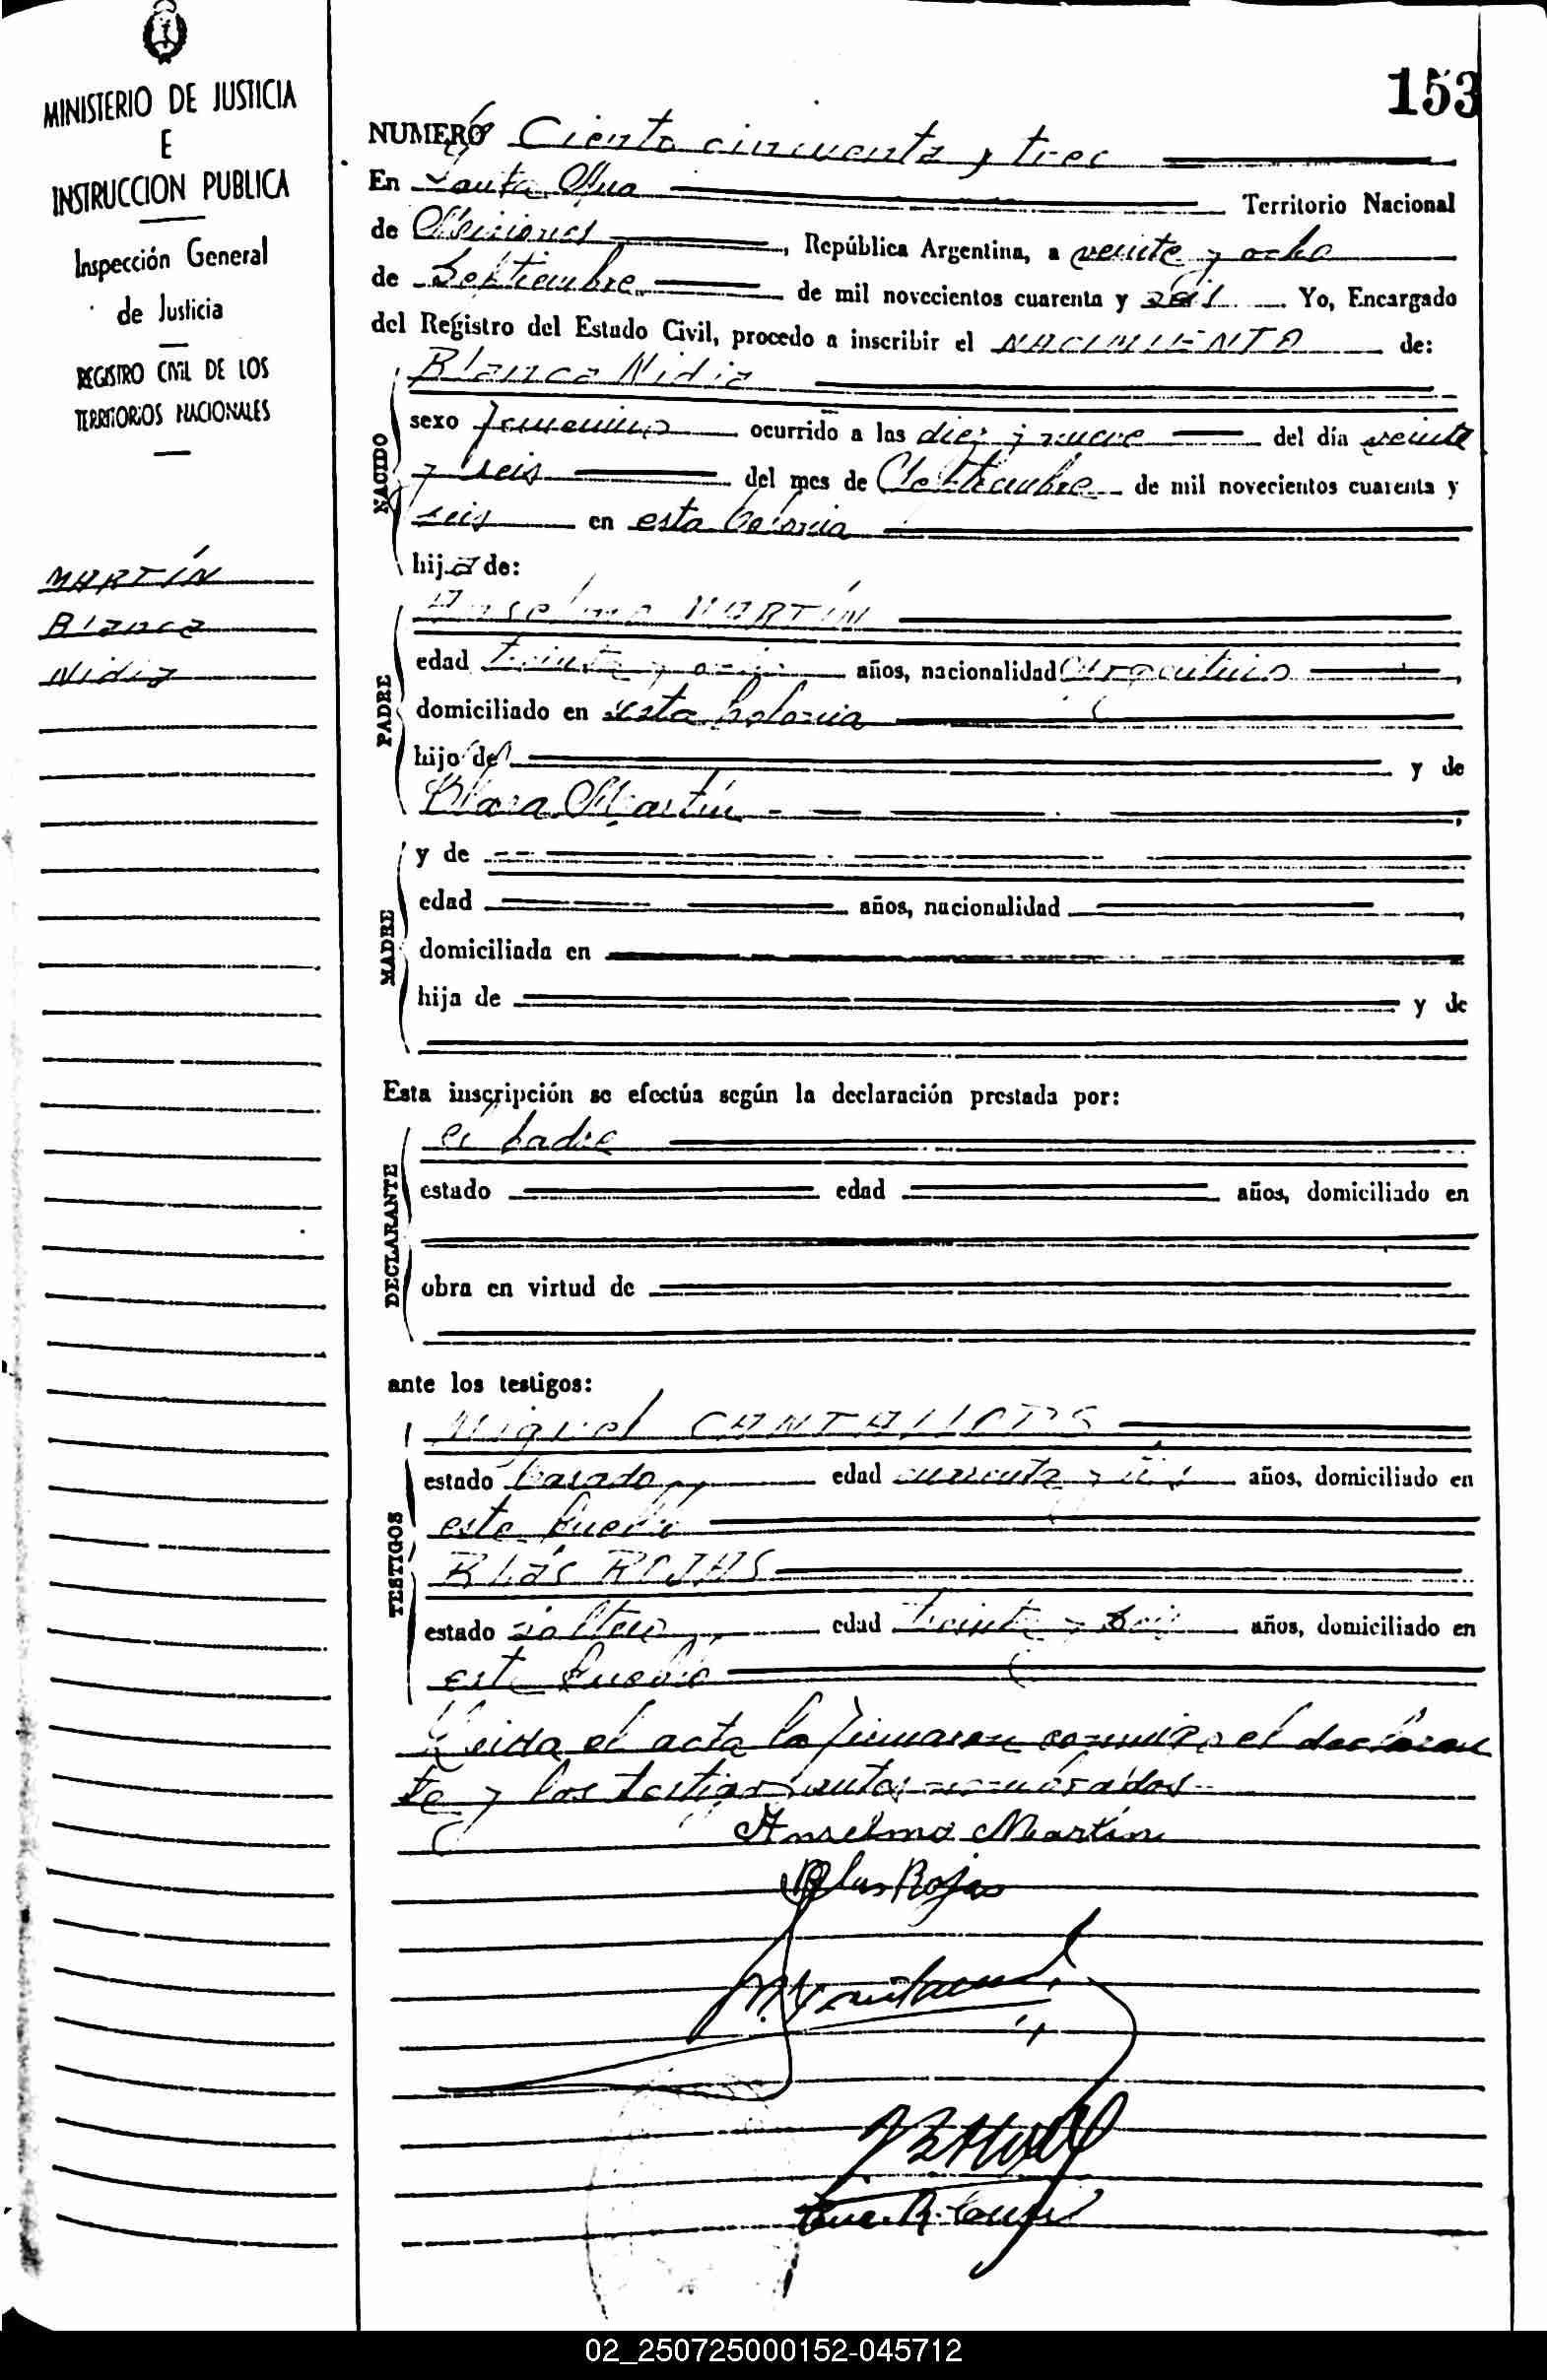 MINISTERIO DE JUSTICIA
E
INSTRUCCION PUBLICA
Inspección General
de Justicia
REGISTRO CIVIL DE LOS
TERRITORIOS NACIONALES
MARTÍN
Blanca
Nidia
153
NUMERO Ciento cincuenta y tres
En Santa Ana Territorio Nacional
de Misiones, República Argentina, a veinte y ocho
de Septiembre de mil novecientos cuarenta y seis Yo, Encargado
del Registro del Estado Civil, procedo a inscribir el NACIMIENTO de:
NACIDO
Blanca Nidia
sexo femenino ocurrido a las diez y nueve del día veinte
y seis del mes de Septiembre de mil novecientos cuarenta y
seis en esta Colonia
hija de:
PADRE
Anselmo MARTÍN
edad treinta y años, nacionalidad argentino,
domiciliado en esta Colonia
hijo de y de
Clara Martín,
MADRE
y de
edad años, nacionalidad,
domiciliada en
hija de y de
Esta inscripción se efectúa según la declaración prestada por:
DECLARANTE
el padre
estado edad años, domiciliado en
obra en virtud de
ante los testigos:
TESTIGOS
Miguel
estado casado edad cuarenta y años, domiciliado en
este pueblo
Blás ROJAS
estado soltero edad treinta y seis años, domiciliado en
este pueblo
Leida el acta la firmaron conmigo el declaran
te y los testigos antes nombrados
Anselmo Martín
Blas Rojas
02_250725000152-045712